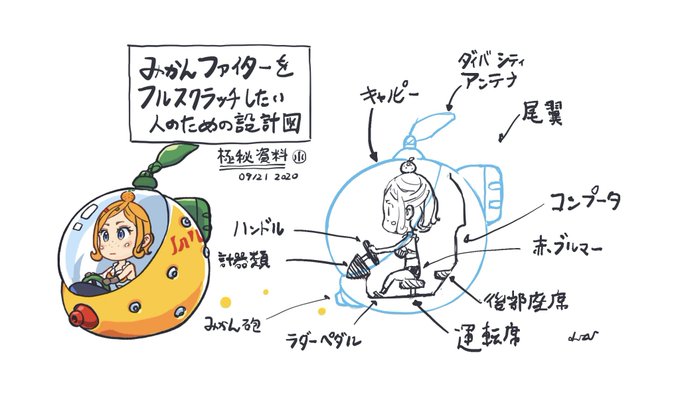 みかんファイターを
フルスクラッチしたい
人のための設計図
極秘資料㊙
09/21 2020
ダイバシティ
アンテナ
キャノピー
尾翼
コンプータ
ハンドル
計器類
赤ブルマー
後部座席
みかん砲
ラダーペダル
運転席